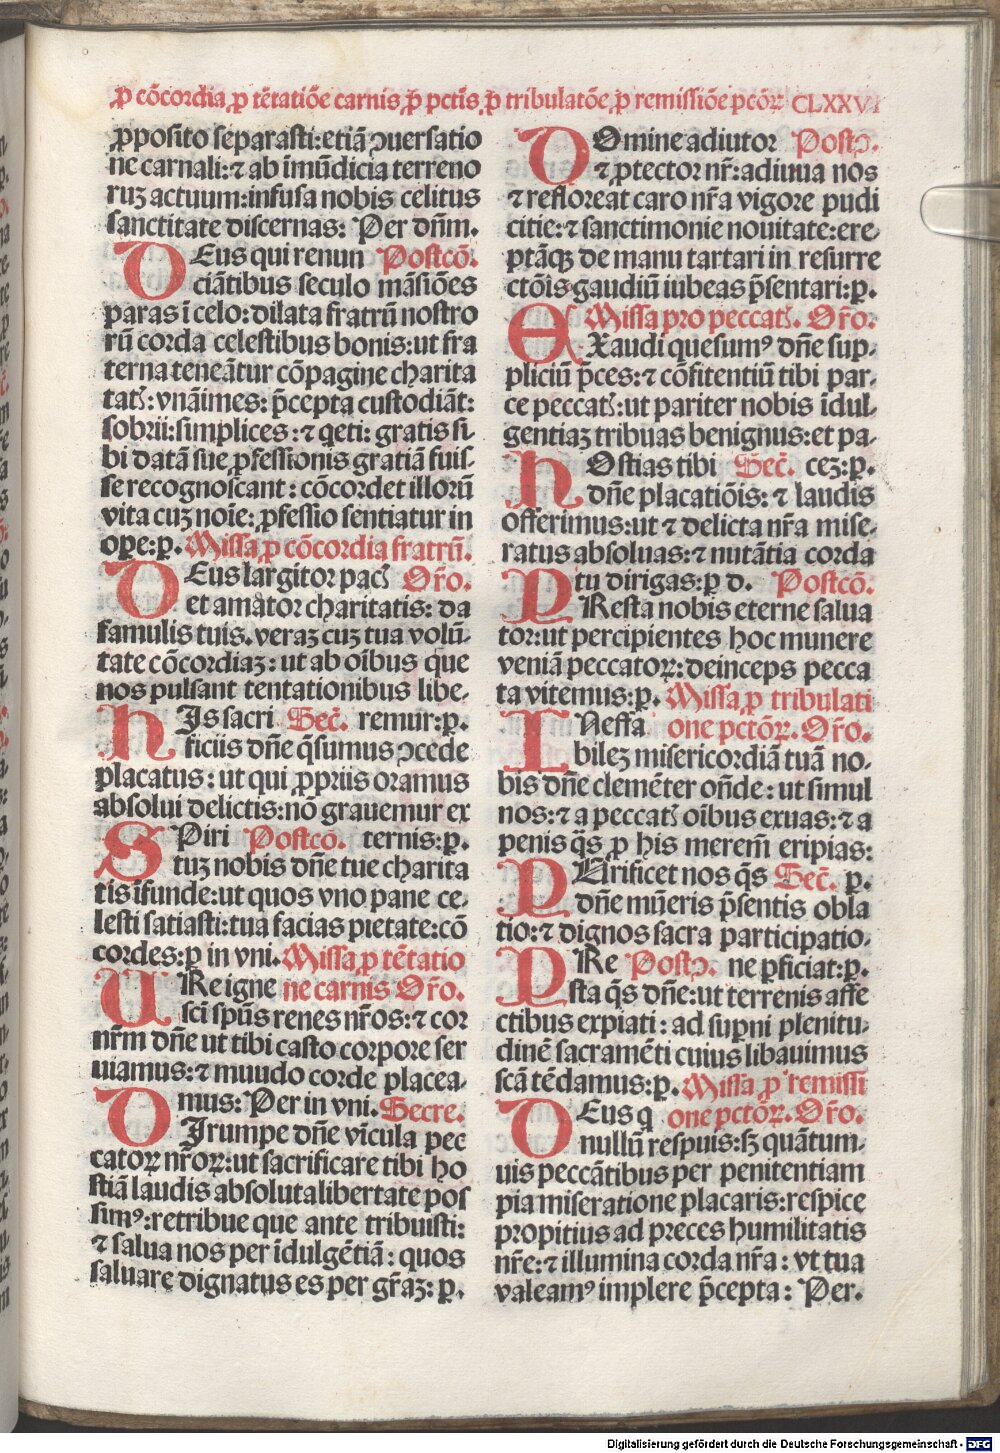 ꝓ cōcordia ꝓ tētatiōe carnis ꝓ pctīs ꝓ tribulatōe ꝓ remissiōe pctōꝝ CLXXVI
ꝓposito separasti: etiā ꝯuersatio
ne carnali: ⁊ ab īmūdicia terreno
ruꝫ actuum: infusa nobis celitus
sanctitate discernas: Per dn̄m.
DEus qui renun Postcō.
ciātibus seculo māsiōes
paras ī celo: dilata fratrū nostro
rū corda celestibus bonis: ut fra
terna teneātur cōpagine charita
tatꝭ: vnāimes: p̄cepta custodiāt:
sobrii: simplices: ⁊ q̇eti: gratis si-
bi datā sue ꝓfessionis gratiā fuis-
se recognoscant: cōcordet illorū
vita cuꝫ noīe: ꝓfessio sentiatur in
oꝑe: ꝑ. Missa ꝓ cōcordia fratrū.
DEus largitor pacꝭ Or̄o.
et amator charitatis: da
famulis tuis. veraꝫ cuꝫ tua volū-
tate cōcordiaꝫ: ut ab oībus que
nos pulsant tentationibus libe-
HIs sacri Sec̄. remur: ꝑ.
ficiis dn̄e q̄sumus ꝯcede
placatus: ut qui ꝓpriis oramus
absolui delictis: nō grauemur ex
SPiri Postcō. ternis: ꝑ.
tuꝫ nobis dn̄e tue charita
tis īfunde: ut quos vno pane ce-
lesti satiasti: tua facias pietate: cō
cordes: ꝑ in vni. Missa ꝓ tētatio
URe igne ne carnis Or̄o.
sc̄i spūs renes nr̄os: ⁊ cor
nr̄m dn̄e ut tibi casto corpore ser
uiamus: ⁊ muudo corde placea-
mus: Per in vni. Secre.
DIrumpe dn̄e vīcula pec
catoꝝ nr̄oꝝ: ut sacrificare tibi ho
stiā laudis absoluta libertate pos
simꝰ: retribue que ante tribuisti:
⁊ salua nos per īdulgētiā: quos
saluare dignatus es per gr̄aꝫ: ꝑ.
DOmine adiutor Postꝯ.
⁊ ꝓtector nr̄: adiuua nos
⁊ refloreat caro nr̄a vigore pudi
citie: ⁊ sanctimonie nouitate: ere-
ptāqꝫ de manu tartari in resurre
ctōīs gaudiū iubeas p̄sentari: ꝑ.
Missa pro peccatꝭ. Or̄o.
EXaudi quesumꝰ dn̄e sup-
pliciū p̄ces: ⁊ cōfitentiū tibi par-
ce peccatꝭ: ut pariter nobis īdul-
gentiaꝫ tribuas benignus: et pa-
HOstias tibi Sec̄. ceꝫ: ꝑ.
dn̄e placatiōis: ⁊ laudis
offerimus: ut ⁊ delicta nr̄a mise-
ratus absoluas: ⁊ nutātia corda
tu dirigas: ꝑ d. Postcō.
PResta nobis eterne salua
tor: ut percipientes hoc munere
veniā peccatoꝝ: deinceps pecca
ta vitemus: ꝑ. Missa ꝓ tribulati
INeffa one pctōꝝ. Or̄o.
bileꝫ misericordiā tuā no-
bis dn̄e clemēter on̄de: ut simul
nos: ⁊ a peccatꝭ oībus exuas: ⁊ a
penis q̄s ꝓ his merem̄ eripias:
PUrificet nos q̄s Sec̄. ꝑ.
dn̄e mūeris p̄sentis obla
tio: ⁊ dignos sacra participatio-
PRe Postꝯ. ne ꝑficiat: ꝑ.
sta q̄s dn̄e: ut terrenis affe
ctibus expiati: ad suꝑni plenitu-
dinē sacramēti cuius libauimus
sc̄a tēdamus: ꝑ. Missa ꝓ remissi
DEus q̇ one pctōꝝ. Or̄o.
nullū respuis: sꝫ quātum-
uis peccātibus per penitentiam
pia miseratione placaris: respice
propitius ad preces humilitatis
nr̄e: ⁊ illumina corda nr̄a: vt tua
valeamꝰ implere p̄cepta: Per.
Digitalisierung gefördert durch die Deutsche Forschungsgemeinschaft - DFG